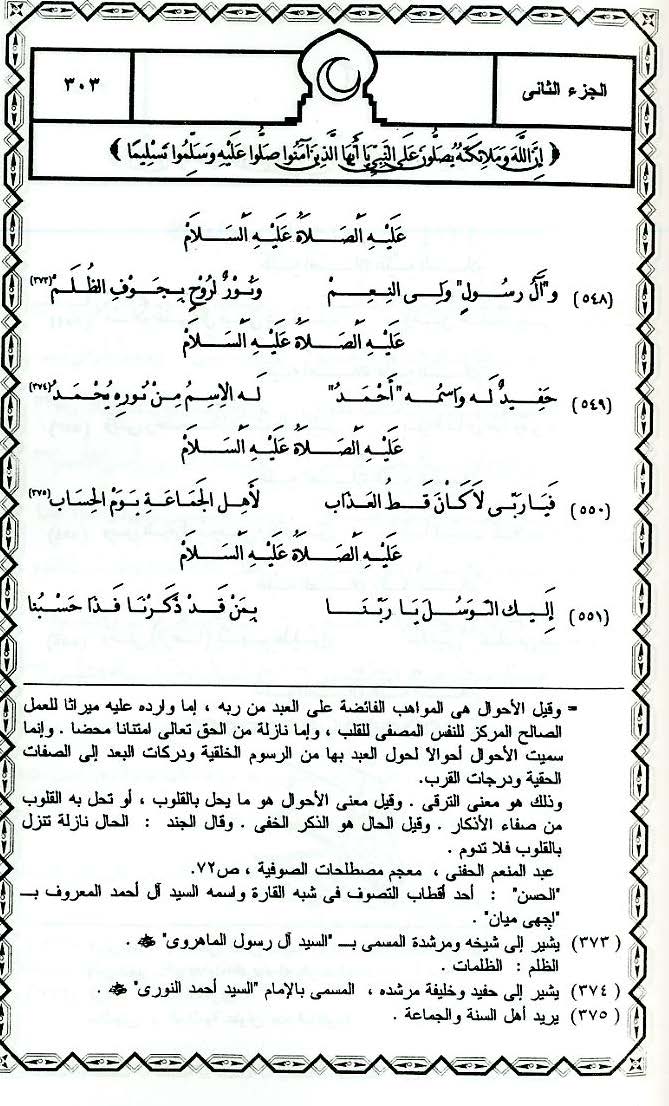 الجزء الثانى
٣٠٣
﴿ إِنَّ اللَّهَ وَمَلَائِكَتَهُ يُصَلُّونَ عَلَى النَّبِيِّ يَا أَيُّهَا الَّذِينَ آمَنُوا صَلُّوا عَلَيْهِ وَسَلِّمُوا تَسْلِيمًا ﴾
عَلَيْهِ الصَّلَاةُ عَلَيْهِ السَّلَامْ
(٥٤٨) و"آلُ رسُولٍ" ولى النِعمْ وَنُوْرٌ لرُوْحٍ بِجَوفِ الظُلَمْ (٣٧٣)
عَلَيْهِ الصَّلَاةُ عَلَيْهِ السَّلَامْ
(٥٤٩) حَفِيدٌ لَه وَاسمُه "أَحْمَدُ" لَه الِاسِمُ مِنْ نُورِه يُحْمَدُ (٣٧٤)
عَلَيْهِ الصَّلَاةُ عَلَيْهِ السَّلَامْ
(٥٥٠) فَيَا رَبّى لَا كَانْ قَطُ العَذَاب لأَهلِ الجَمَاعَةِ بِوَمْ الحِسَاب (٣٧٥)
عَلَيْهِ الصَّلَاةُ عَلَيْهِ السَّلَامْ
(٥٥١) إِلَيك التَوسُلَ يَا رَبَّنَا بِمَنْ قَدْ ذَكَرْنَا فَذَا حَسْبُنا
= وقيل الأحوال هى المواهب الفائضة على العبد من ربه ، إما وارده عليه ميراثا للعمل
الصالح المركز للنفس المصفى للقلب ، وإما نازلة من الحق تعالى امتنانا محضا . وإنما
سميت الأحوال أحوالا لحول العبد بها من الرسوم الخلقية ودركات البعد إلى الصفات
الحقية ودرجات القرب.
وذلك هو معنى الترقى . وقيل معنى الأحوال هو ما يحل بالقلوب ، أو تحل به القلوب
من صفاء الأذكار . وقيل الحال هو الذكر الخفى . وقال الجند : الحال نازلة تنزل
بالقلوب فلا تدوم .
عبد المنعم الحفنى ، معجم مصطلحات الصوفية ، ص٧٢.
"الحسن" : أحد أقطاب التصوف فى شبه القارة واسمه السيد آل أحمد المعروف بــ
"اچهى ميان" .
(٣٧٣) يشير إلى شيخه ومرشدة المسمى بــ "السيد آل رسول الماهروى" ﷺ .
الظلم : الظلمات .
(٣٧٤) يشير إلى حفيد وخليفة مرشده ، المسمى بالإمام "السيد أحمد النورى" ﷺ .
(٣٧٥) يريد أهل السنة والجماعة .